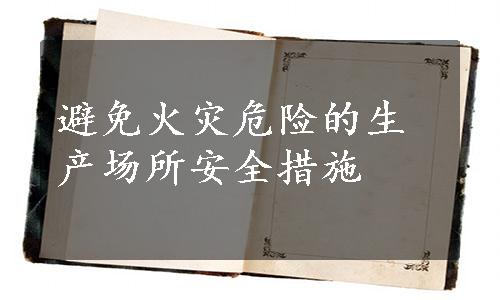 避免火灾危险的生
产场所安全措施